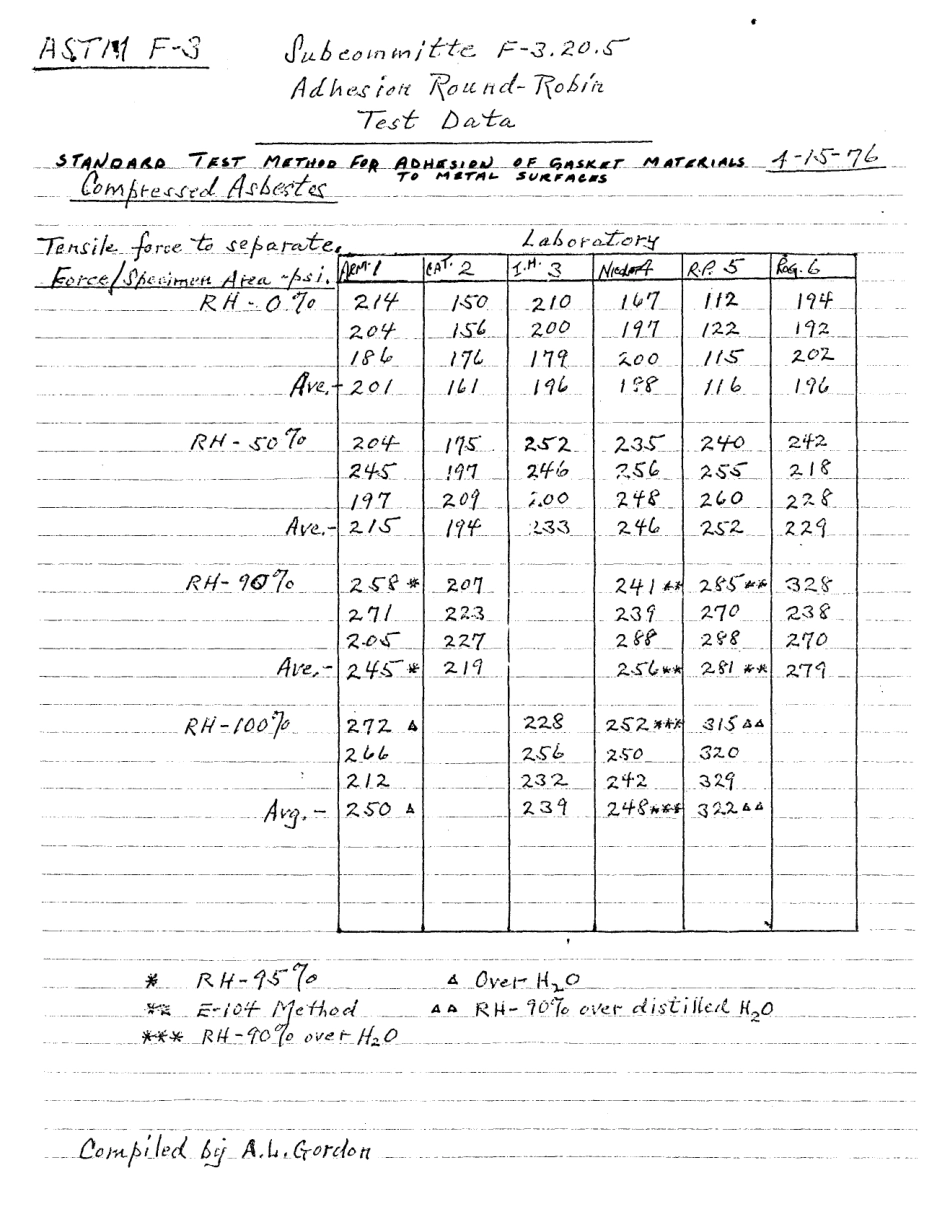 ASTM F-3 Subcommitte F-3.20.5
Adhesion Round-Robin
Test Data
STANDARD TEST METHOD FOR ADHESION OF GASKET MATERIALS 4-15-76
TO METAL SURFACES
Compressed Asbestes
Tensile force to separate. Laboratory
Force/Specimen Area -psi. ARM-1 CAT. 2 I.H. 3 R.P. 5 Rog. 6
RH-0% 214 150 210 167 112 194
204 156 200 197 122 192
186 176 179 200 115 202
Ave.- 201 161 196 188 116 196
RH-50% 204 175 252 235 240 242
245 197 246 256 255 218
197 209 200 248 260 228
Ave.- 215 194 233 246 252 229
RH-90% 258* 207 241** 285** 328
271 223 239 270 238
205 227 288 288 270
Ave.- 245* 219 256** 281** 279
RH-100% 272 Δ 228 252*** 315 ΔΔ
266 256 250 320
212 232 242 329
Avg.- 250 Δ 239 248*** 322 ΔΔ
* RH-95% Δ Over H₂O
** E-104 Method ΔΔ RH-90% over distilled H₂O
*** RH-90% over H₂O
Compiled by A.L.Gordon